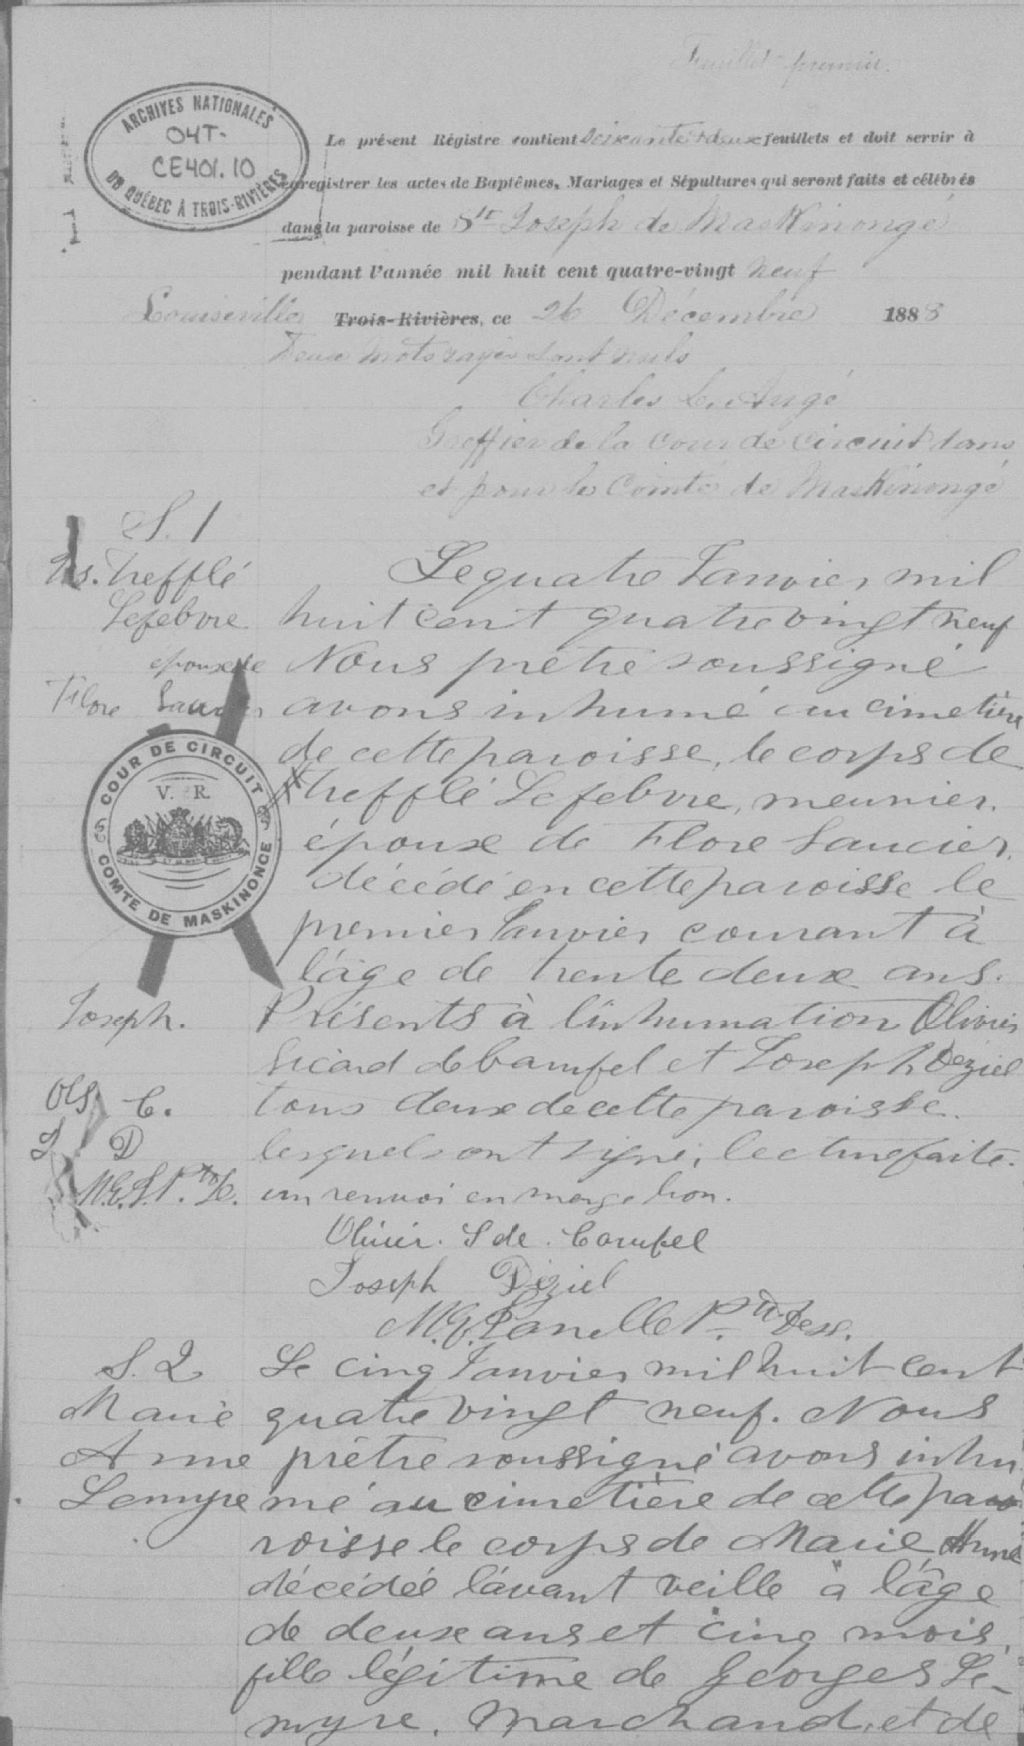 Feuillet premier.
ARCHIVES NATIONALES
04T-
CE401.10
DU QUÉBEC À TROIS-RIVIÈRES
Le présent Régistre contient soixante & deux feuillets et doit servir à
enregistrer les actes de Baptêmes, Mariages et Sépultures qui seront faits et célébrés
dans la paroisse de St Joseph de Maskinongé
pendant l'année mil huit cent quatre-vingt neuf
Louiseville Trois-Rivières, ce 26 Décembre 1888
Deux mots rayés sont nuls
Charles L. Augé
Greffier de la Cour de Circuit dans
et pour le Comté de Maskinongé
S. 1
Js. Trefflé
Lefebvre
epoux de
Flore Saucier
COUR DE CIRCUIT
V. R.
COMTE DE MASKINONGE
Le quatre Janvier mil
huit cent quatre vingt neuf
Nous prêtre soussigné
avons inhumé au cimetière
de cette paroisse, le corps de
# Trefflé Lefebvre, meunier,
époux de Flore Saucier,
décédé en cette paroisse le
premier Janvier courant à
l'âge de trente deux ans.
Joseph.
Présents à l'inhumation Olivier
Sicard de Carufel et Joseph Déziel
OlS C.
tous deux de cette paroisse.
J D
lesquels ont signé, lecture faite.
un renvoi en marge bon.
Olivier. S de. Carufel
Joseph Déziel
S. 2
Marie
Anne
Lemyre
Le cinq Janvier mil huit cent
quatre vingt neuf. Nous
prêtre soussigné avons inhu
mé au cimetière de cette pa
roisse le corps de Marie Anne
décédée l'avant veille à l'âge
de deux ans et cinq mois,
fille légitime de Georges Le-
myre, Marchand, et de